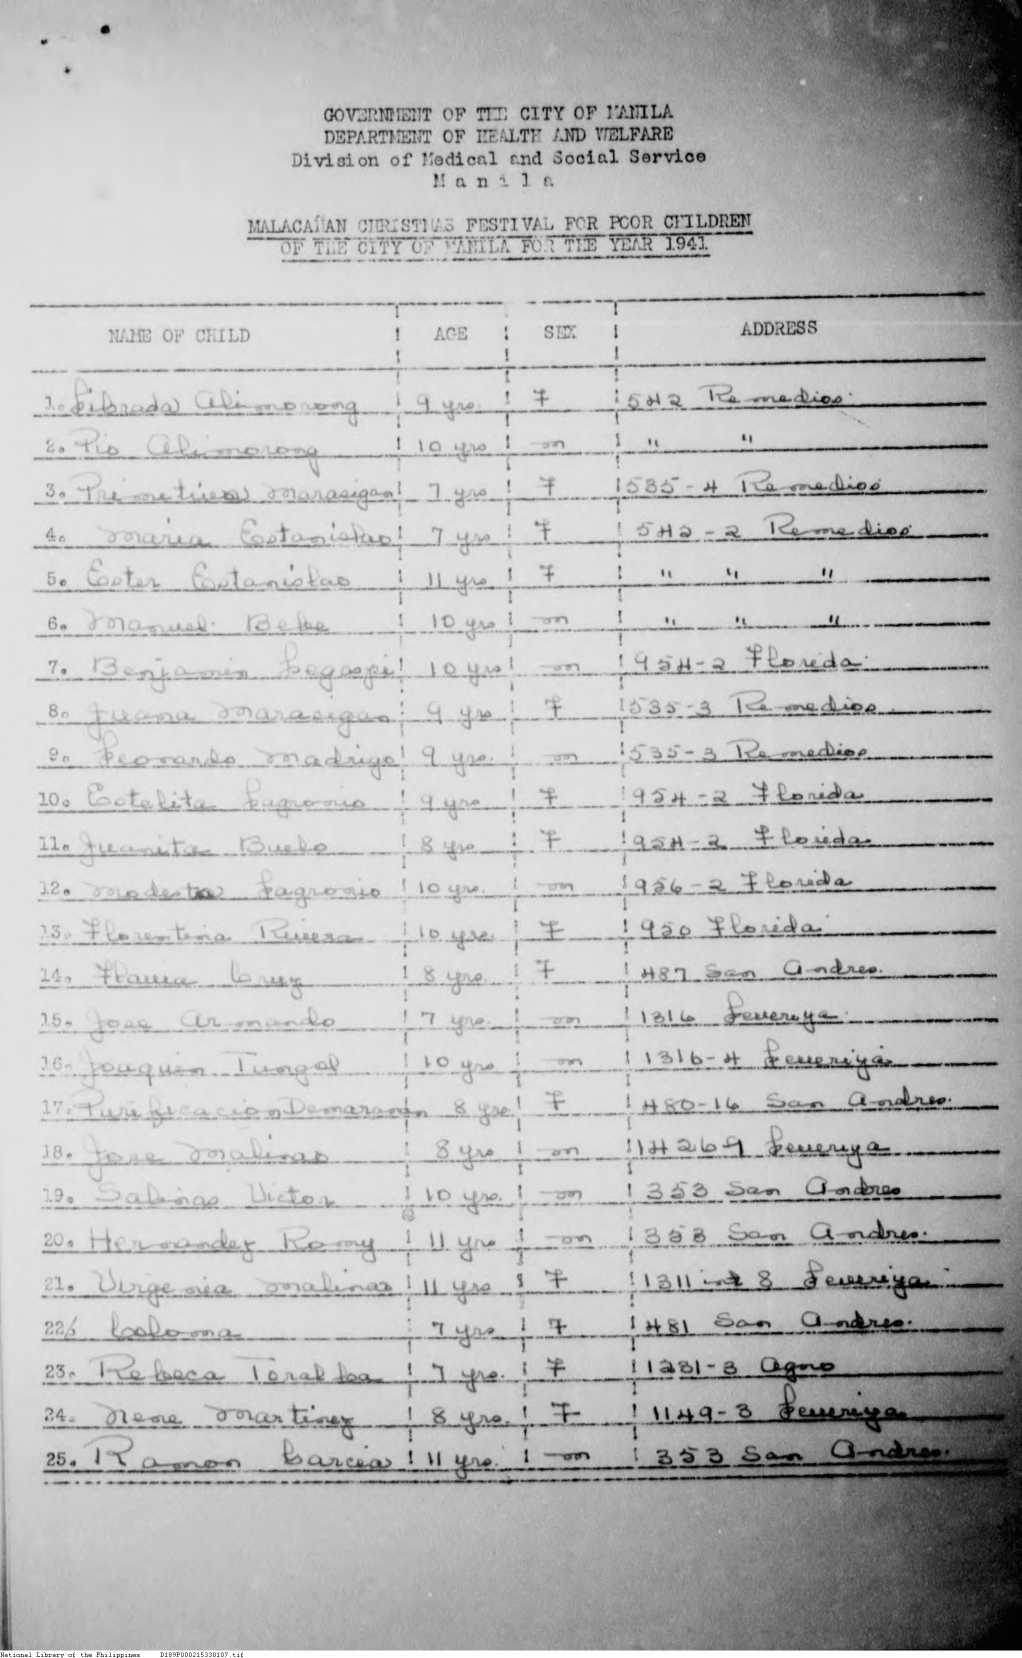 GOVERNMENT OF THE CITY OF MANILA
DEPARTMENT OF HEALTH AND WELFARE
Division of Medical and Social Service
M a n i l a
MALACAÑAN CHRISTMAS FESTIVAL FOR POOR CHILDREN
OF THE CITY OF MANILA FOR THE YEAR 1941
NAME OF CHILD ! AGE ! SEX ! ADDRESS
1. Librada Alimorong ! 9 yrs. ! F ! 542 Remedios.
2. Pio Alimorong ! 10 yrs ! m ! " "
3. Primitiva Marasigan ! 7 yrs ! F ! 535-4 Remedios
4. Maria Estanislao ! 7 yrs ! F ! 542-2 Remedios
5. Ester Estanislao ! 11 yrs ! F ! " " "
6. Manuel Bebe ! 10 yrs ! m ! " " "
7. Benjamin Legaspi ! 10 yrs ! m ! 954-2 Florida
8. Juana Marasigan ! 9 yrs ! F ! 535-3 Remedios
9. Leonardo Madrigo ! 9 yrs. ! m ! 535-3 Remedios
10. Estelita Lagronio ! 9 yrs ! F ! 954-2 Florida
11. Juanita Buelo ! 8 yrs ! F ! 954-2 Florida
12. Modesto Lagronio ! 10 yrs. ! m ! 956-2 Florida
13. Florentina Rivera ! 10 yrs. ! F ! 950 Florida
14. Flavia Cruz ! 8 yrs. ! F ! 487 San Andres.
15. Jose Armando ! 7 yrs. ! m ! 1316 Leveriya
16. Joaquin Tungol ! 10 yrs ! m ! 1316-4 Leveriya
17. Purificacion 8 yrs ! F ! 480-16 San Andres.
18. Jose Malinao ! 8 yrs ! m ! Leveriya
19. Salinas Victor ! 10 yrs. ! m ! 353 San Andres
20. Hernandez Romy ! 11 yrs ! m ! 353 San Andres.
21. Virgenia Malinao ! 11 yrs ! F ! 1311 int 8 Leveriya
22. Coloma ! 7 yrs ! F ! 481 San Andres.
23. Rebeca ! 7 yrs. ! F ! 1231-3 Agno
24. Nene Martinez ! 8 yrs. ! F ! 1149-3 Leveriya
25. Ramon Garcia ! 11 yrs. ! m ! 353 San Andres.
National Library of the Philippines D189P000215330107.tif